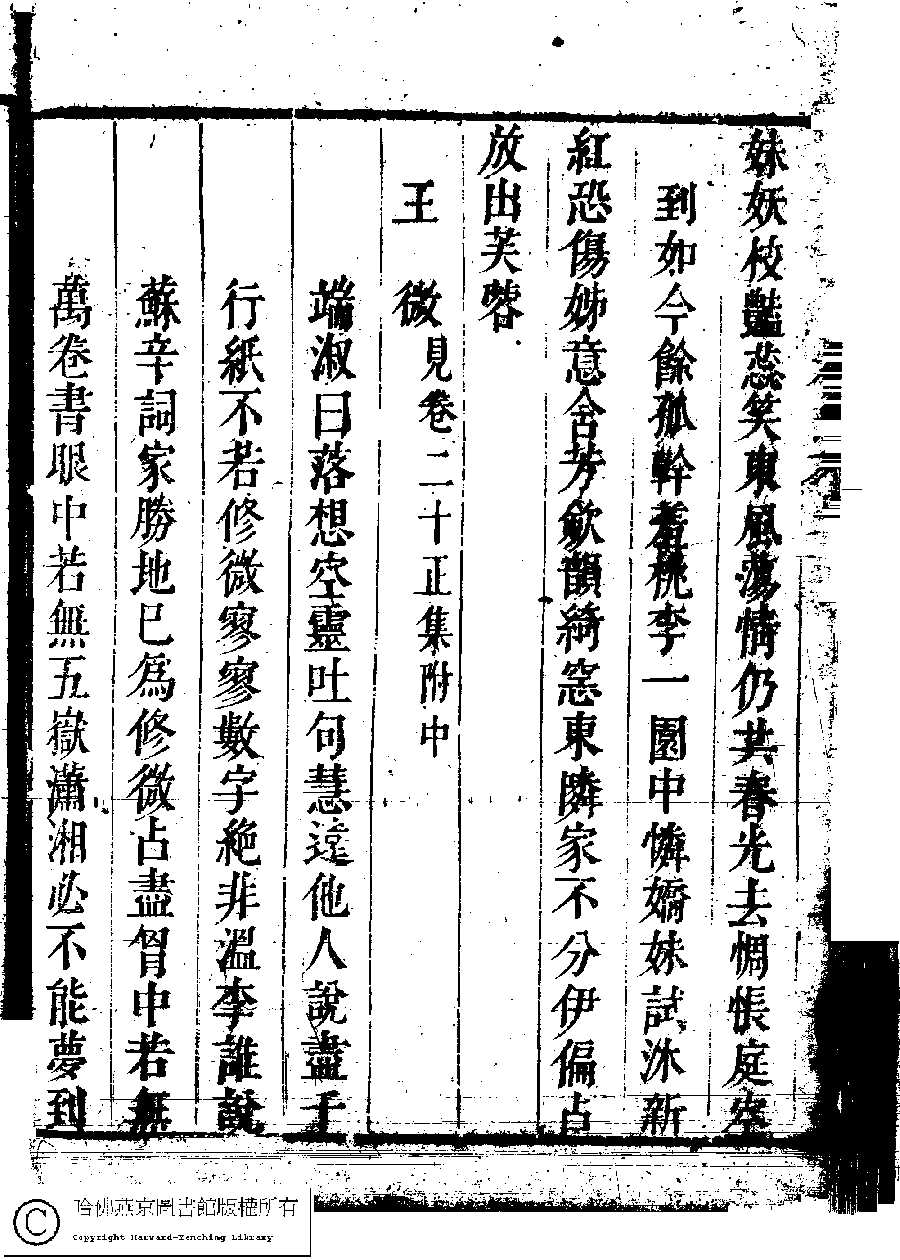 妹妖枝豔蕊笑東風蕩情仍共春光去惆悵庭空
到如今餘孤幹羞桃李一園中憐嬌妹試沐新
紅恐傷姊意含芳歛韻綺窓東隣家不分伊偏占
放出芙蓉
王 微見卷二十正集附中
端淑曰落想空靈吐句慧遠他人說盡千
行紙不若修微寥寥數字絶非溫李誰說
蘇辛詞家勝地已爲修微占盡胷中若無
萬卷書眼中若無五嶽瀟湘必不能夢到
哈佛燕京圖書館版權所有
Copyright Harvard-Yenching Library